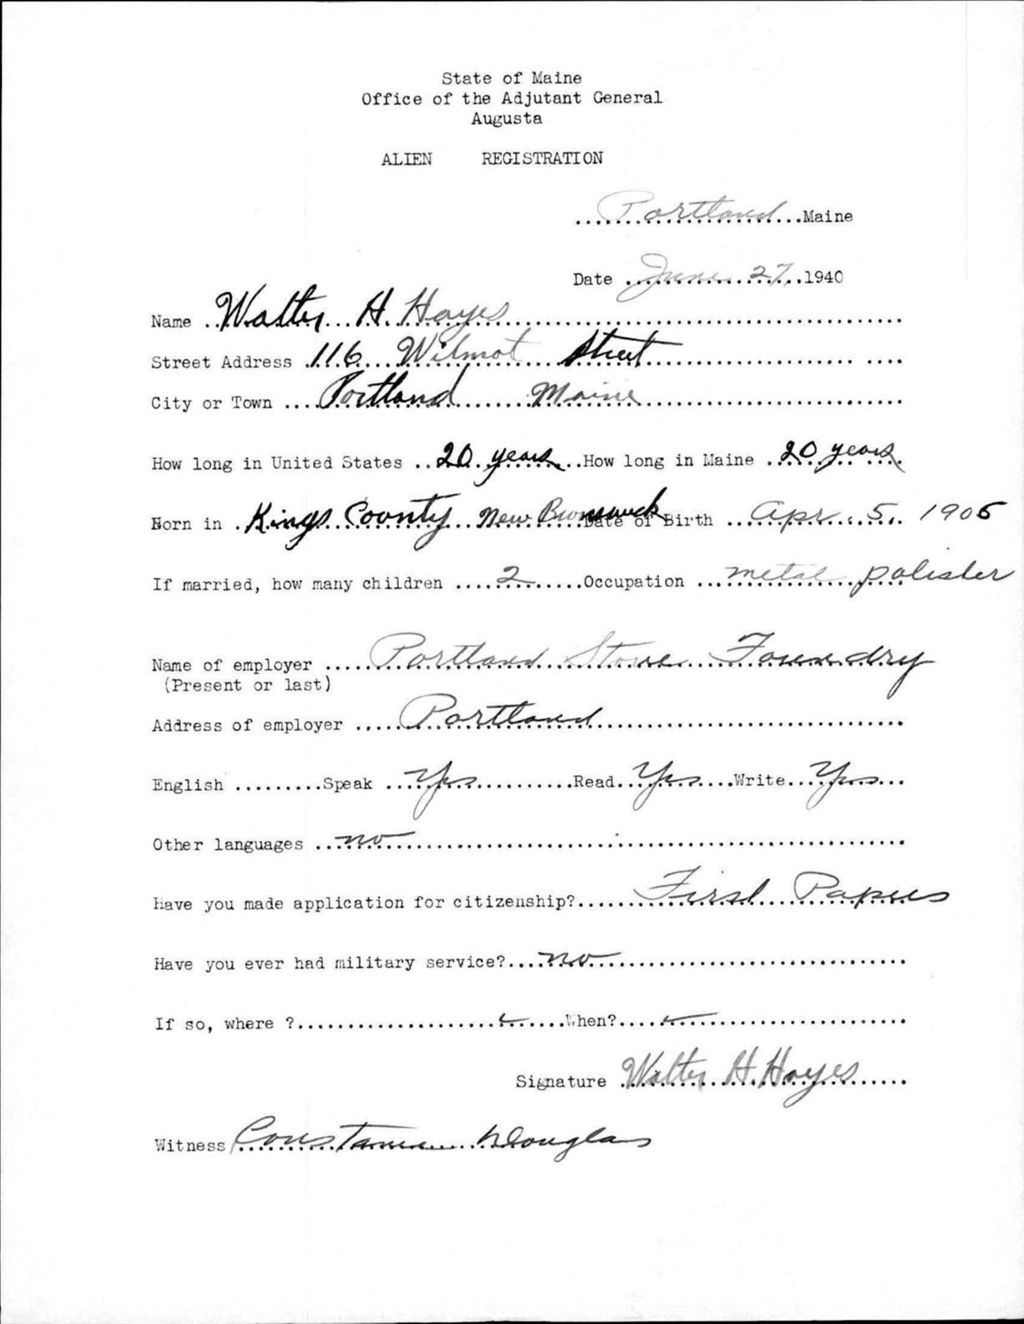 State of Maine
Office of the Adjutant General
Augusta
ALIEN REGISTRATION
Portland Maine
Date June 27, 1940
Name Walter H. Hayes
Street Address 116 Wilmot Street
City or Town Portland Maine
How long in United States 20 years How long in Maine 20 years
Born in Kings County New Brunswick Date of Birth Apr. 5, 1906
If married, how many children 2 Occupation metal polisher
Name of employer Portland Stove Foundry
(Present or last)
Address of employer Portland
English Speak Yes Read Yes Write Yes
Other languages no
Have you made application for citizenship? First Papers
Have you ever had military service? no
If so, where ? When?
Signature Walter H. Hayes
Witness Constance Douglas